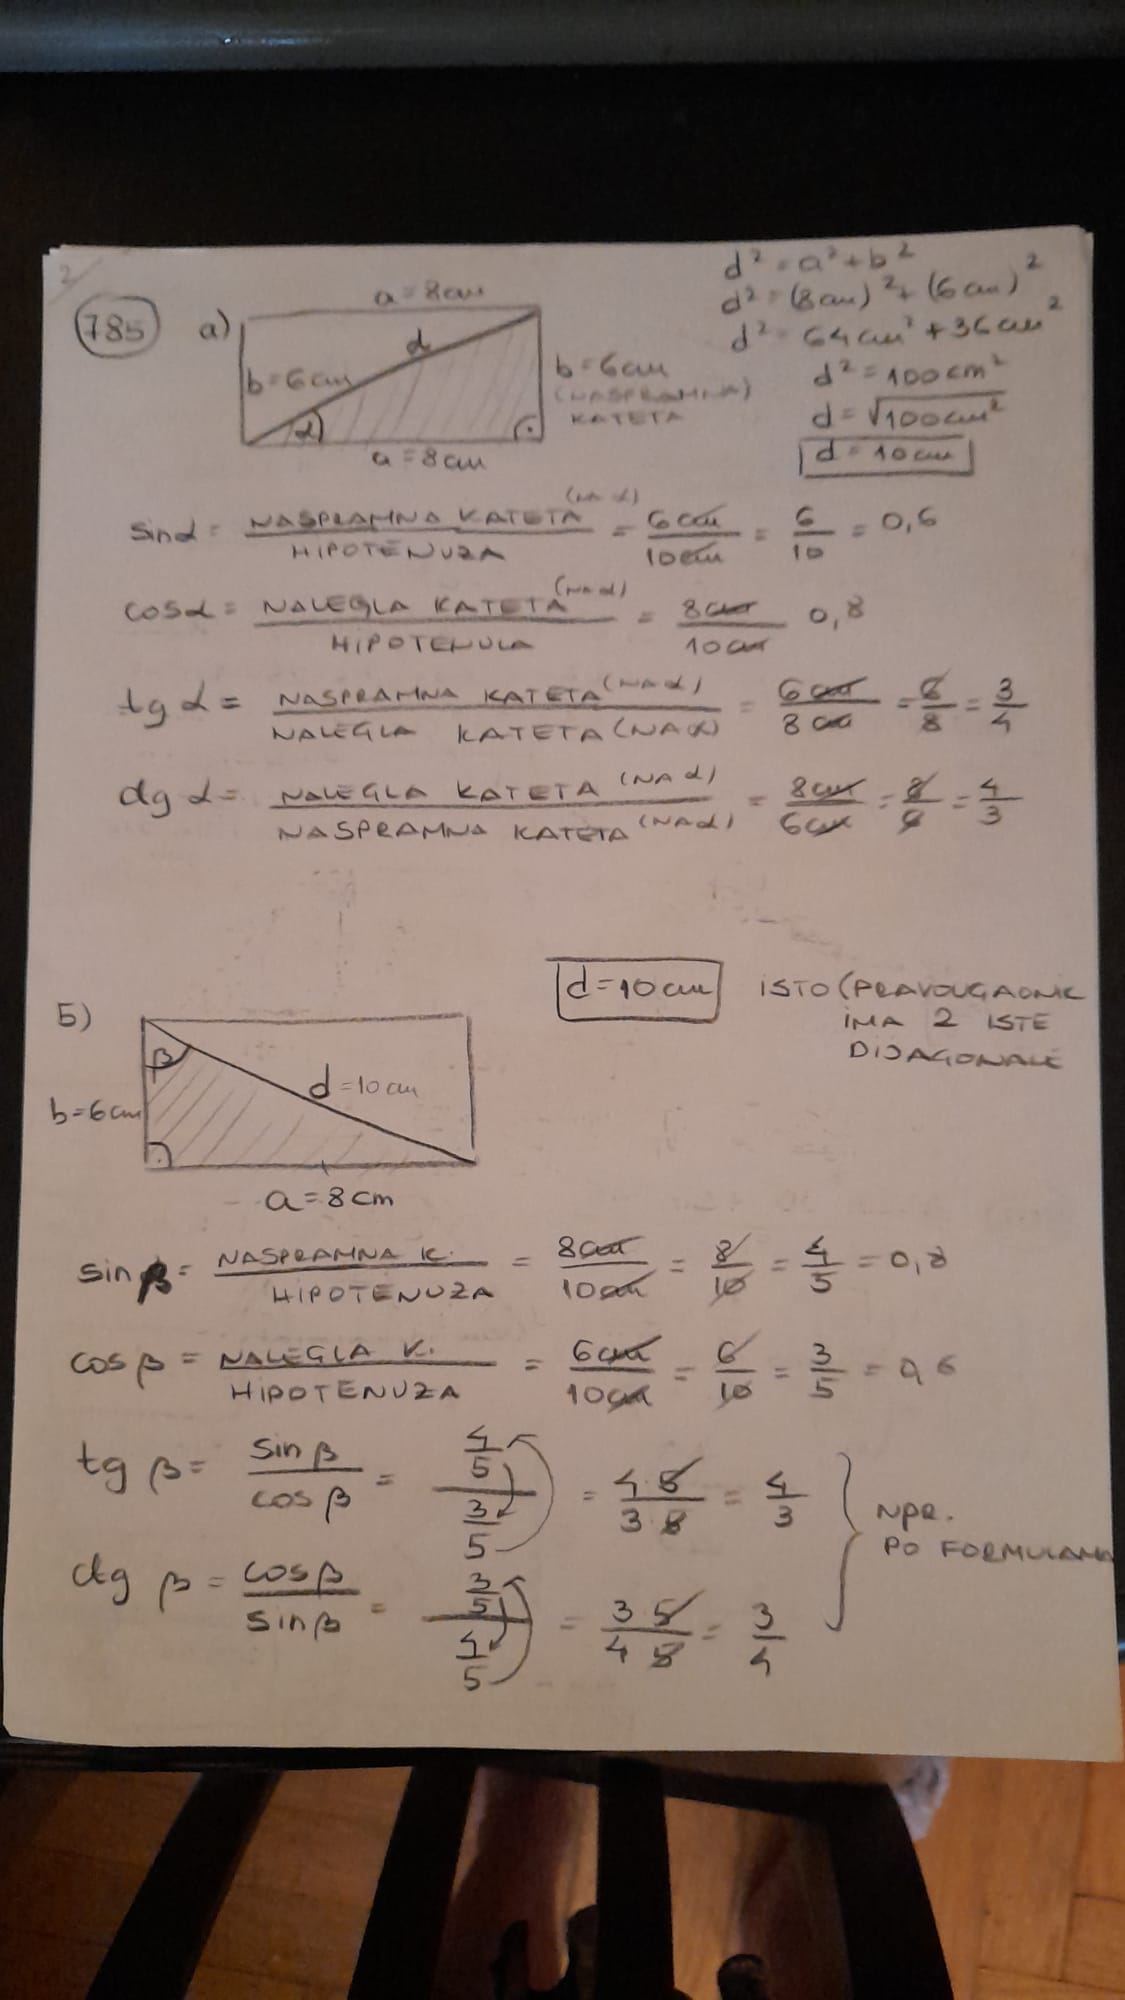 785 a)
a = 8cm
b = 6cm
d
α
a = 8cm
b = 6cm
(NASPRAMNA)
KATETA
d² = a² + b²
d² = (8cm)² + (6cm)²
d² = 64cm² + 36cm²
d² = 100cm²
d = √100cm²
d = 10cm
sinα = NASPRAMNA KATETA (NA α) / HIPOTENUZA = 6cm / 10cm = 6/10 = 0,6
cosα = NALEGLA KATETA (NA α) / HIPOTENULA = 8cm / 10cm 0,8
tg α = NASPRAMNA KATETA (NA α) / NALEGLA KATETA (NA α) = 6cm / 8cm = 6/8 = 3/4
ctg α = NALEGLA KATETA (NA α) / NASPRAMNA KATETA (NA α) = 8cm / 6cm = 8/6 = 4/3
d = 10cm ISTO (PRAVOUGAONIK
IMA 2 ISTE
DIJAGONALE
Б)
β
d = 10cm
b = 6cm
a = 8cm
sin β = NASPRAMNA K. / HIPOTENUZA = 8cm / 10cm = 8/10 = 4/5 = 0,8
cos β = NALEGLA K. / HIPOTENUZA = 6cm / 10cm = 6/10 = 3/5 = 0,6
tg β = sin β / cos β = 4/5 / 3/5 = 4·5 / 3·5 = 4/3
ctg β = cos β / sin β = 3/5 / 4/5 = 3·5 / 4·5 = 3/4
NPR.
PO FORMULAMA